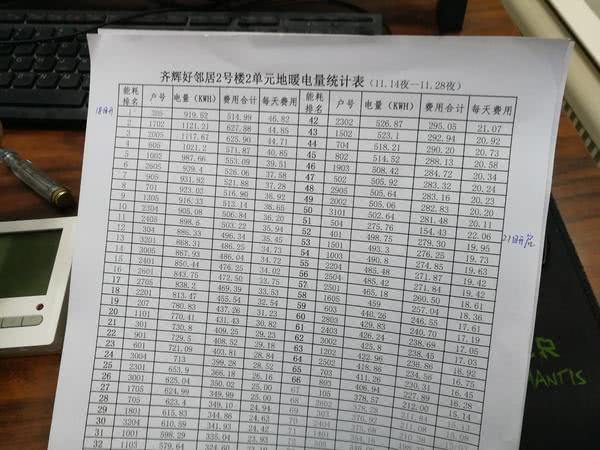 齐辉好邻居2号楼2单元地暖电量统计表(11.14夜—11.28夜)
能耗排名 户号 电量(KWH) 费用合计 每天费用 能耗排名 户号 电量(KWH) 费用合计 每天费用
1 919.52 514.99 46.82 42 2302 526.87 295.05 21.07
2 1702 1121.21 627.88 44.85 43 1502 523.1 292.94 20.92
3 2005 1117.67 625.90 44.71 44 704 518.21 290.20 20.73
4 605 1021.2 571.87 40.85 45 802 514.52 288.13 20.58
5 1005 987.66 553.09 39.51 46 1903 508.42 284.72 20.34
6 2605 939.4 526.06 37.58 47 502 505.92 283.32 20.24
7 905 931.92 521.88 37.28 48 2905 505.64 283.16 20.23
8 701 923.03 516.90 36.92 49 2002 505.06 282.83 20.20
9 1305 916.33 513.14 36.65 50 3101 502.64 281.48 20.11
10 2304 905.08 506.84 36.20 51 504 275.76 154.43 22.06
11 2405 898.6 503.22 35.94 52 401 498.75 279.30 19.95
12 304 886.33 496.34 35.45 53 1501 493.3 276.25 19.73
13 3201 868.31 486.25 34.73 54 1003 490.8 274.85 19.63
14 3005 867.93 486.04 34.72 55 2204 485.48 271.87 19.42
15 2401 850.44 476.25 34.02 56 485.42 19.42
16 2601 843.75 472.50 33.75 57 2501 465.18 260.50 18.61
17 2705 838.2 469.39 33.53 58 1605 459 257.04 18.36
18 2201 813.47 455.54 32.54 59 603 440.26 246.55 17.61
19 207 780.83 437.26 31.23 60 2803 429.83 240.70 17.19
20 1101 770.41 431.43 30.82 61 2403 426.24 238.69 17.05
21 301 730.8 409.25 29.23 62 3002 425.8 238.45 17.03
22 901 729.5 408.52 29.18 63 1202 422.96 236.86 16.92
23 601 721.09 403.81 28.84 64 2702 418.86 234.56 16.75
24 3004 713 399.28 28.52 65 703 411.26 230.31 16.45
25 2301 653.9 366.18 26.16 66 406.94 227.89 16.28
26 3001 625.04 350.02 25.00 67 105 378.57 212.00 15.14
27 1705 624.99 349.99 25.00 68 2602 378.28 211.84 15.13
28 705 623.4 349.10 24.94 69 303 211.08 15.08
29 1801 615.83 344.86 24.63
30 3204 610.59 341.93 24.42
31 1001 598.29 335.04 23.93
32 1103 579.64 324.60